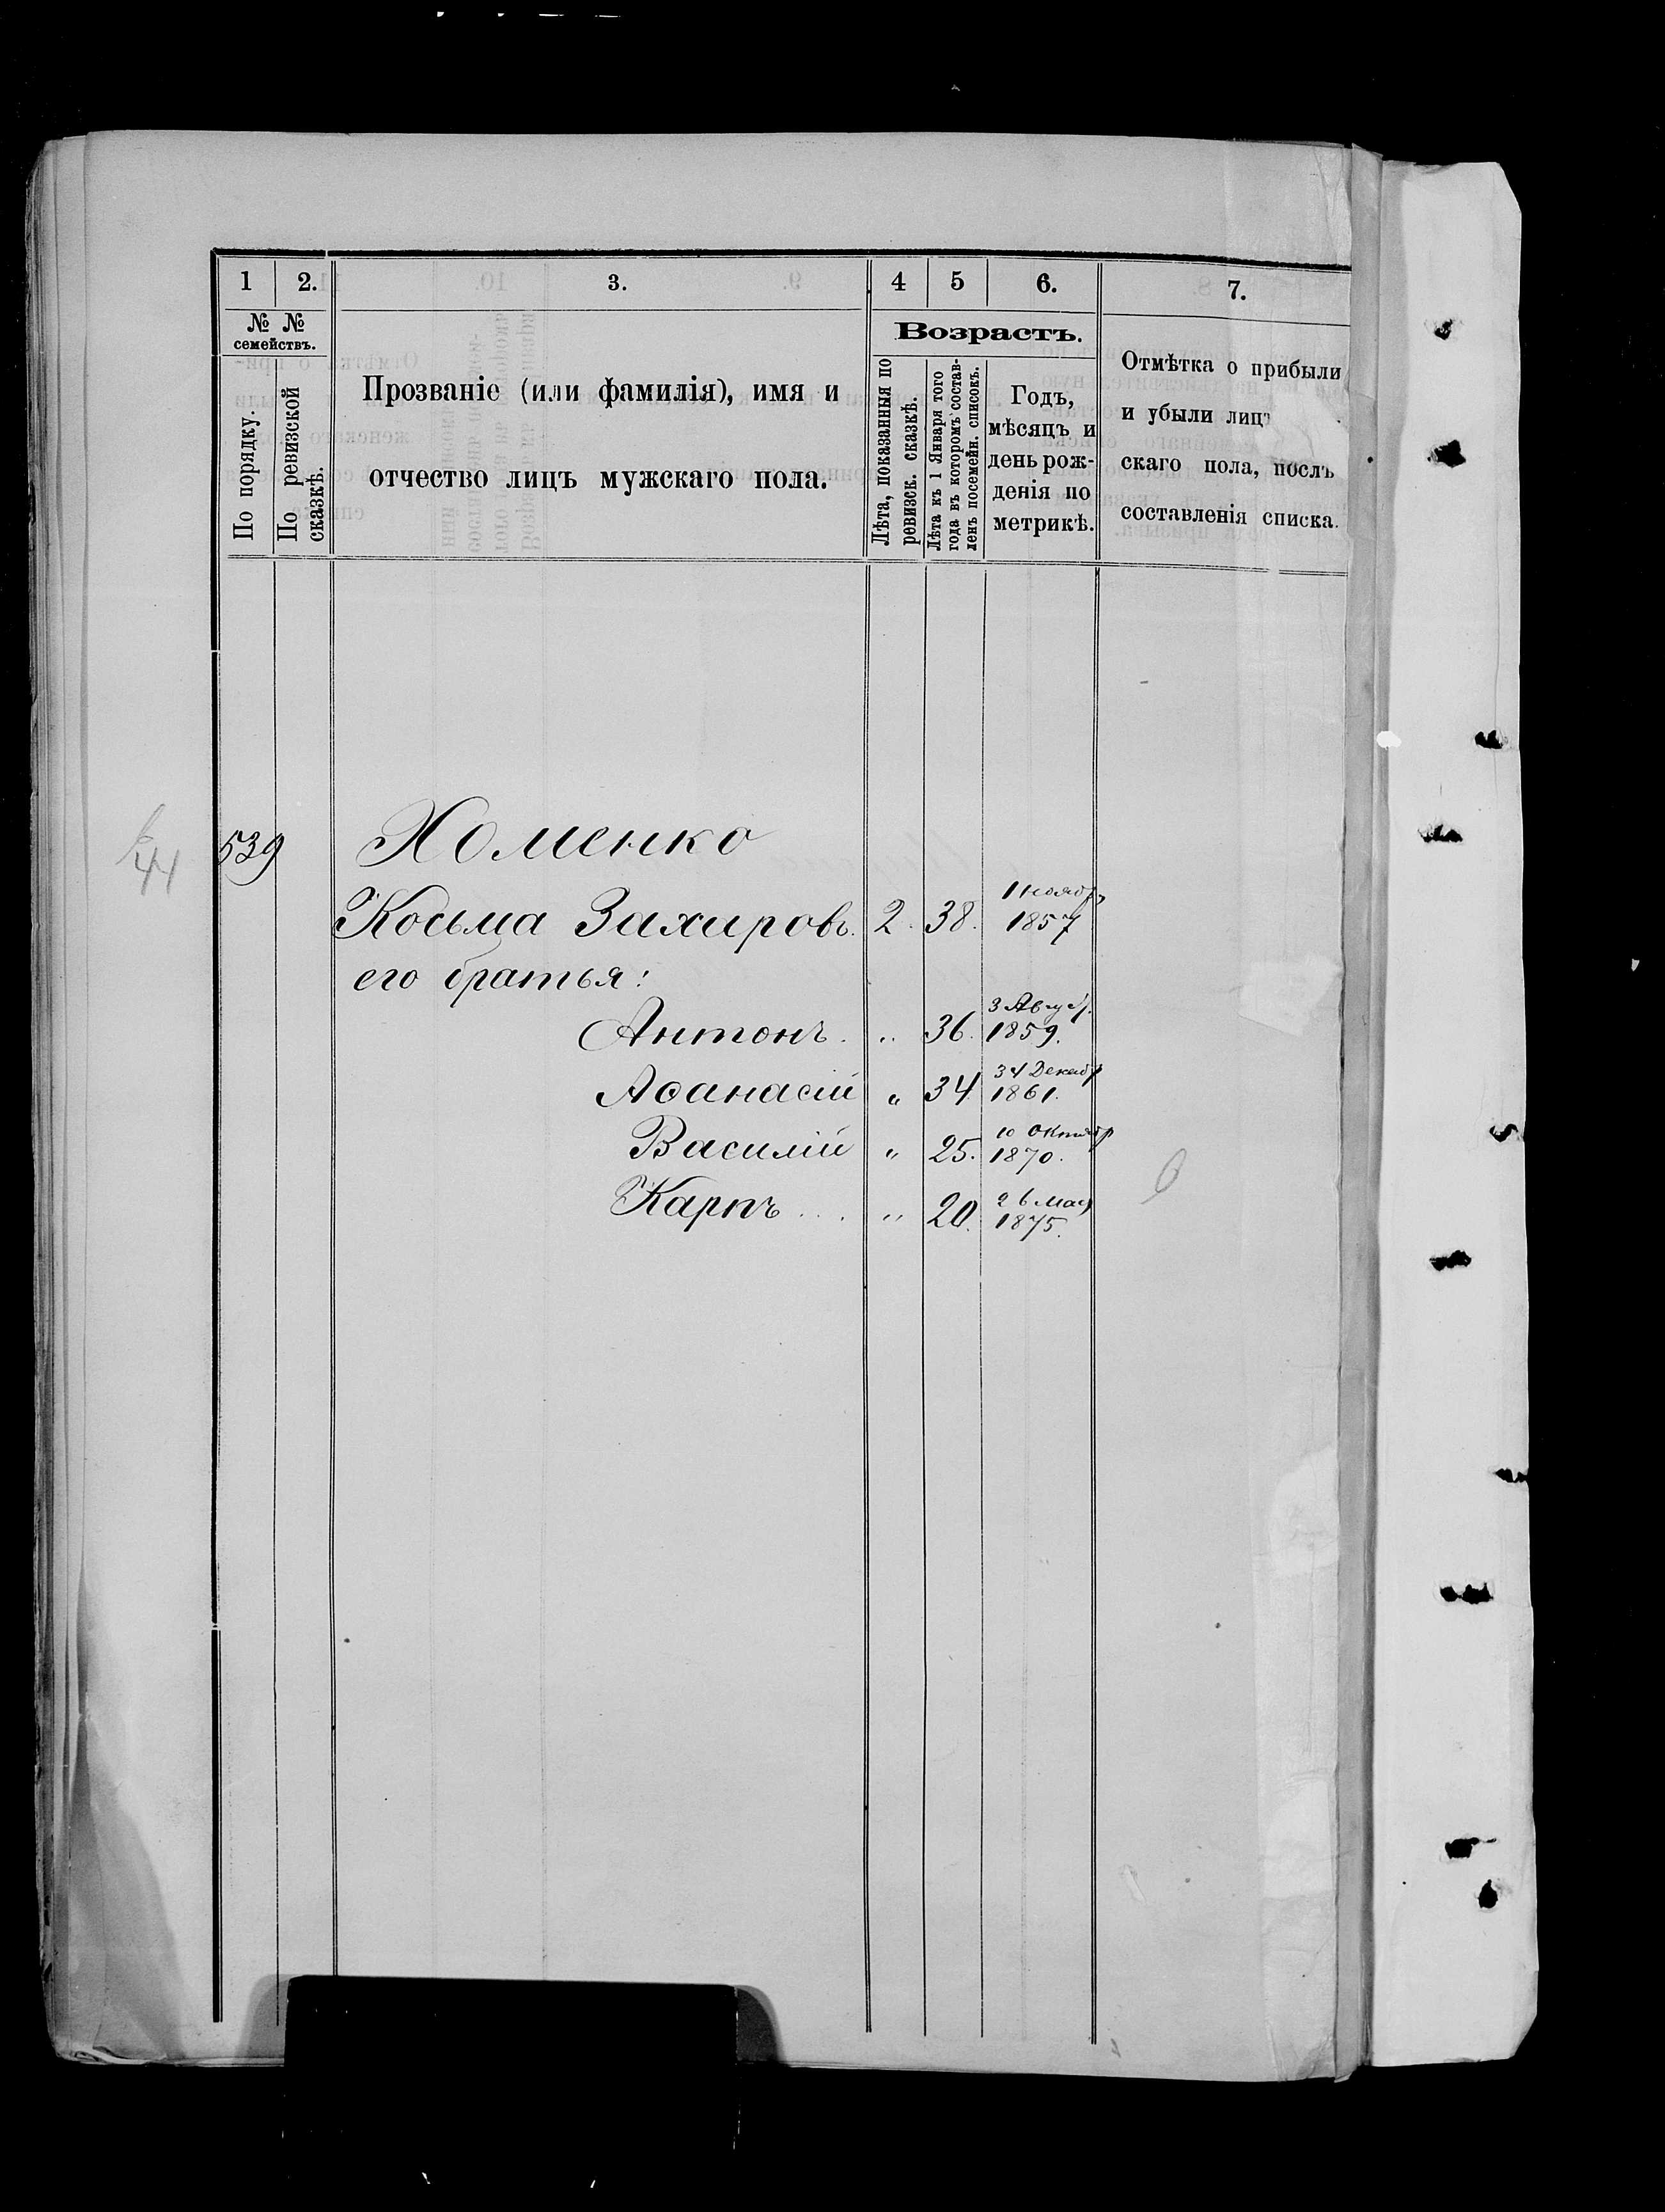 1 2. 3. 4 5 6. 7.
№ № семействъ.
По порядку.
По ревизской сказкѣ.
Прозваніе (или фамилія), имя и
отчество лицъ мужскаго пола.
Возрастъ.
Лѣта, показанныя по
ревизск. сказкѣ.
Лѣта къ 1 Января того
года въ которомъ состав-
ленъ посемейн. списокъ.
Годъ,
мѣсяцъ и
день рож-
денія по
метрикѣ.
Отмѣтка о прибыли
и убыли лицъ
скаго пола, послѣ
составленія списка.
44 539 Хоменко
1 ноябр.
Косьма Захировъ. 2. 38. 1857
его братья:
3 Август.
Антонъ. .. 36. 1859.
Декабр
Аѳанасій „ 34 1861.
10 Октябр
Василій „ 25. 1870.
26 Мая
Карпъ ... „ 20. 1875.